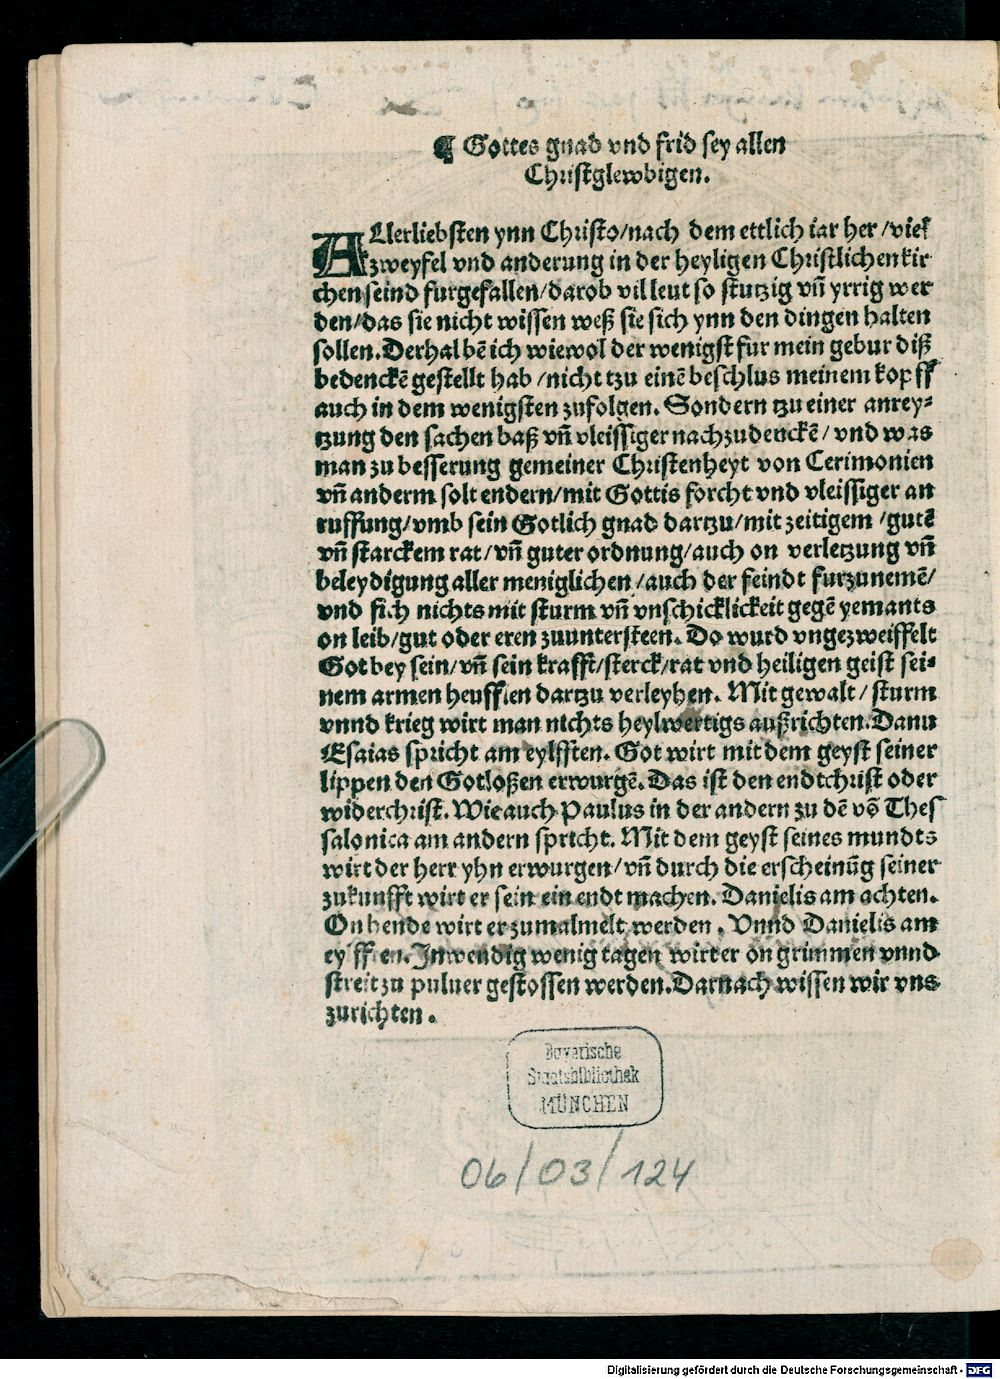 ¶ Gottes gnad vnd frid sey allen
Christglewbigen.
ALlerliebsten ynn Christo/nach dem ettlich iar her/viel
zweyfel vnd anderung in der heyligen Christlichen kir
chen seind furgefallen/darob vil leut so stutzig vñ yrrig wer
den/das sie nicht wissen weß sie sich ynn den dingen halten
sollen. Derhalbẽ ich wiewol der wenigst fur mein gebur diß
bedenckẽ gestellt hab/nicht tzu einẽ beschlus meinem kopff
auch in dem wenigsten zufolgen. Sondern tzu einer anrey⸗
tzung den sachen baß vñ vleissiger nachzudenckẽ/vnd was
man zu besserung gemeiner Christenheyt von Cerimonien
vñ anderm solt endern/mit Gottis forcht vnd vleissiger an
ruffung/vmb sein Gotlich gnad dartzu/mit zeitigem/gutẽ
vñ starckem rat/vñ guter ordnung/auch on verletzung vñ
beleydigung aller meniglichen/auch der feindt furzunemẽ/
vnd sich nichts mit sturm vñ vnschicklickeit gegẽ yemants
on leib/gut oder eren zuuntersteen. Do wurd vngezweiffelt
Got bey sein/vñ sein krafft/sterck/rat vnd heiligen geist sei⸗
nem armen heufflen dartzu verleyhen. Mit gewalt/sturm
vnnd krieg wirt man nichts heylwertigs außrichten. Dann
Esaias spricht am eylfften. Got wirt mit dem geyst seiner
lippen den Gotloßen erwurgẽ. Das ist den endtchrist oder
widerchrist. Wie auch Paulus in der andern zu dẽ võ Thes
salonica am andern spricht. Mit dem geyst seines mundts
wirt der herr yhn erwurgen/vñ durch die erscheinũg seiner
zukunfft wirt er sein ein endt machen. Danielis am achten.
On hende wirt er zumalmelt werden. Vnnd Danielis am
eylfften. Inwendig wenig tagen wirt er on grimmen vnnd
streit zu puluer gestossen werden. Darnach wissen wir vns
zurichten.
Bayerische
Staatsbibliothek
MÜNCHEN
06/03/124
Digitalisierung gefördert durch die Deutsche Forschungsgemeinschaft - DFG